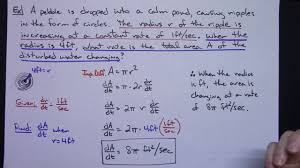 Ex) A pebble is dropped into a calm pond, causing ripples
in the form of circles. The radius r of the ripple is
increasing at a constant rate of 1ft/sec. When the
radius is 4ft, what rate is the total area A of the
disturbed water changing?
4ft=r
Imp. Diff.
A = πr²
dA/dt = π2r dr/dt
Given: dr/dt = 1ft/sec
dA/dt = 2π r dr/dt
Find: dA/dt when r=4ft
dA/dt = 2π·4ft (1ft/sec)
dA/dt = 8π ft²/sec
∴ When the radius
is 4ft, the area
is changing at a
rate of
8π ft²/sec